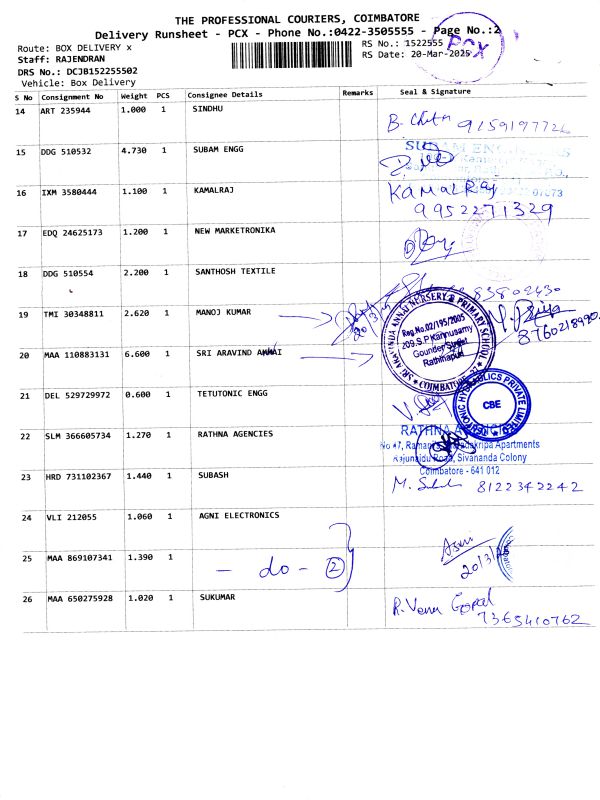 THE PROFESSIONAL COURIERS, COIMBATORE
Delivery Runsheet - PCX - Phone No.:0422-3505555 - Page No.:2
Route: BOX DELIVERY x
RS No.: 1522555
PCX
Staff: RAJENDRAN
RS Date: 20-Mar-2025
DRS No.: DCJB152255502
Vehicle: Box Delivery
S No Consignment No Weight PCS Consignee Details Remarks Seal & Signature
14 ART 235944 1.000 1 SINDHU
9159197726
15 DDG 510532 4.730 1 SUBAM ENGG
SUBAM ENGINEERS
16 IXM 3580444 1.100 1 KAMALRAJ KAMALRAJ
9952271329
17 EDQ 24625173 1.200 1 NEW MARKETRONIKA
18 DDG 510554 2.200 1 SANTHOSH TEXTILE
19 TMI 30348811 2.620 1 MANOJ KUMAR
8760218990
SRI ARAVINDA ANNAI NURSERY & PRIMARY SCHOOL
Reg.No.02/195/2005
209, S.P Kannusamy
Gounder Street
Rathinapuri
COIMBATORE
20 MAA 110883131 6.600 1 SRI ARAVIND ANNAI
21 DEL 529729972 0.600 1 TETUTONIC ENGG
HYDRAULICS PRIVATE LIMITED
CBE
22 SLM 366605734 1.270 1 RATHNA AGENCIES
RATHNA AGENCIES
Apartments
Rajunaidu Road, Sivananda Colony
Coimbatore - 641 012
23 HRD 731102367 1.440 1 SUBASH
8122342242
24 VLI 212055 1.060 1 AGNI ELECTRONICS
20/3/25
25 MAA 869107341 1.390 1 - do - 2
26 MAA 650275928 1.020 1 SUKUMAR
R. Venu Gopal
7365410762